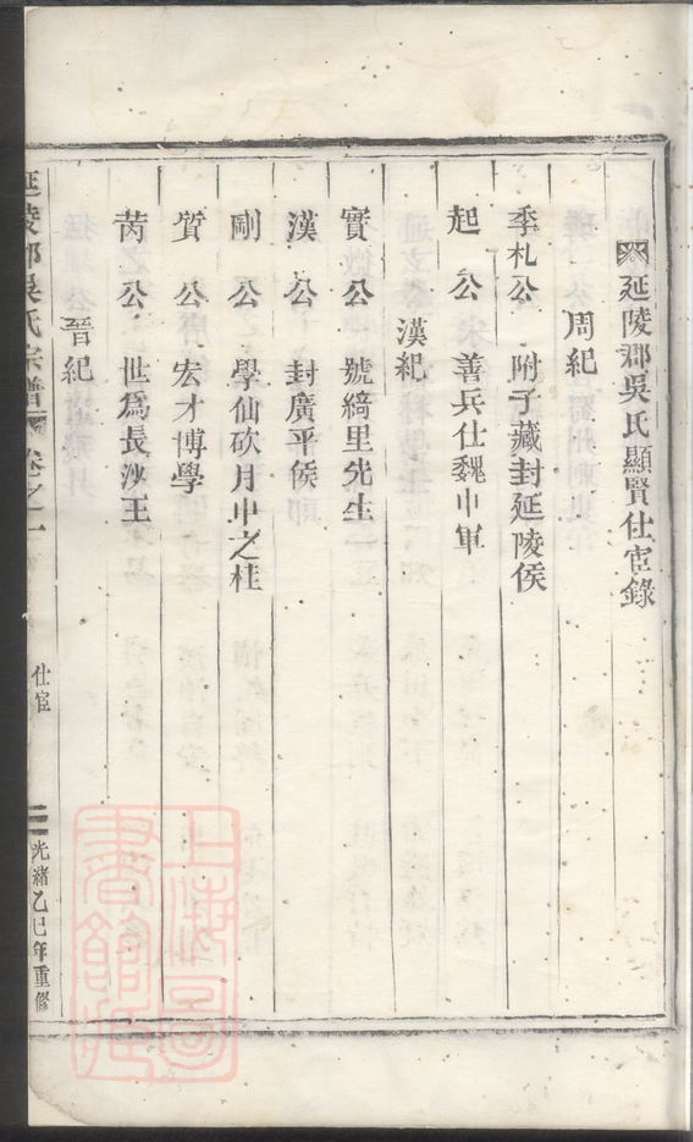 延陵郡吳氏顯賢仕宦錄
周紀
季札公 附子藏封延陵侯
起公 善兵仕魏中軍
漢紀
實公 號綺里先生
漢公 封廣平侯
剛公 學仙砍月中之桂
質公 宏才博學
芮公 世爲長沙王
晉紀
延陵郡吳氏宗譜 卷之一 仕宦 二 光緒乙巳年重修
上海圖書館藏